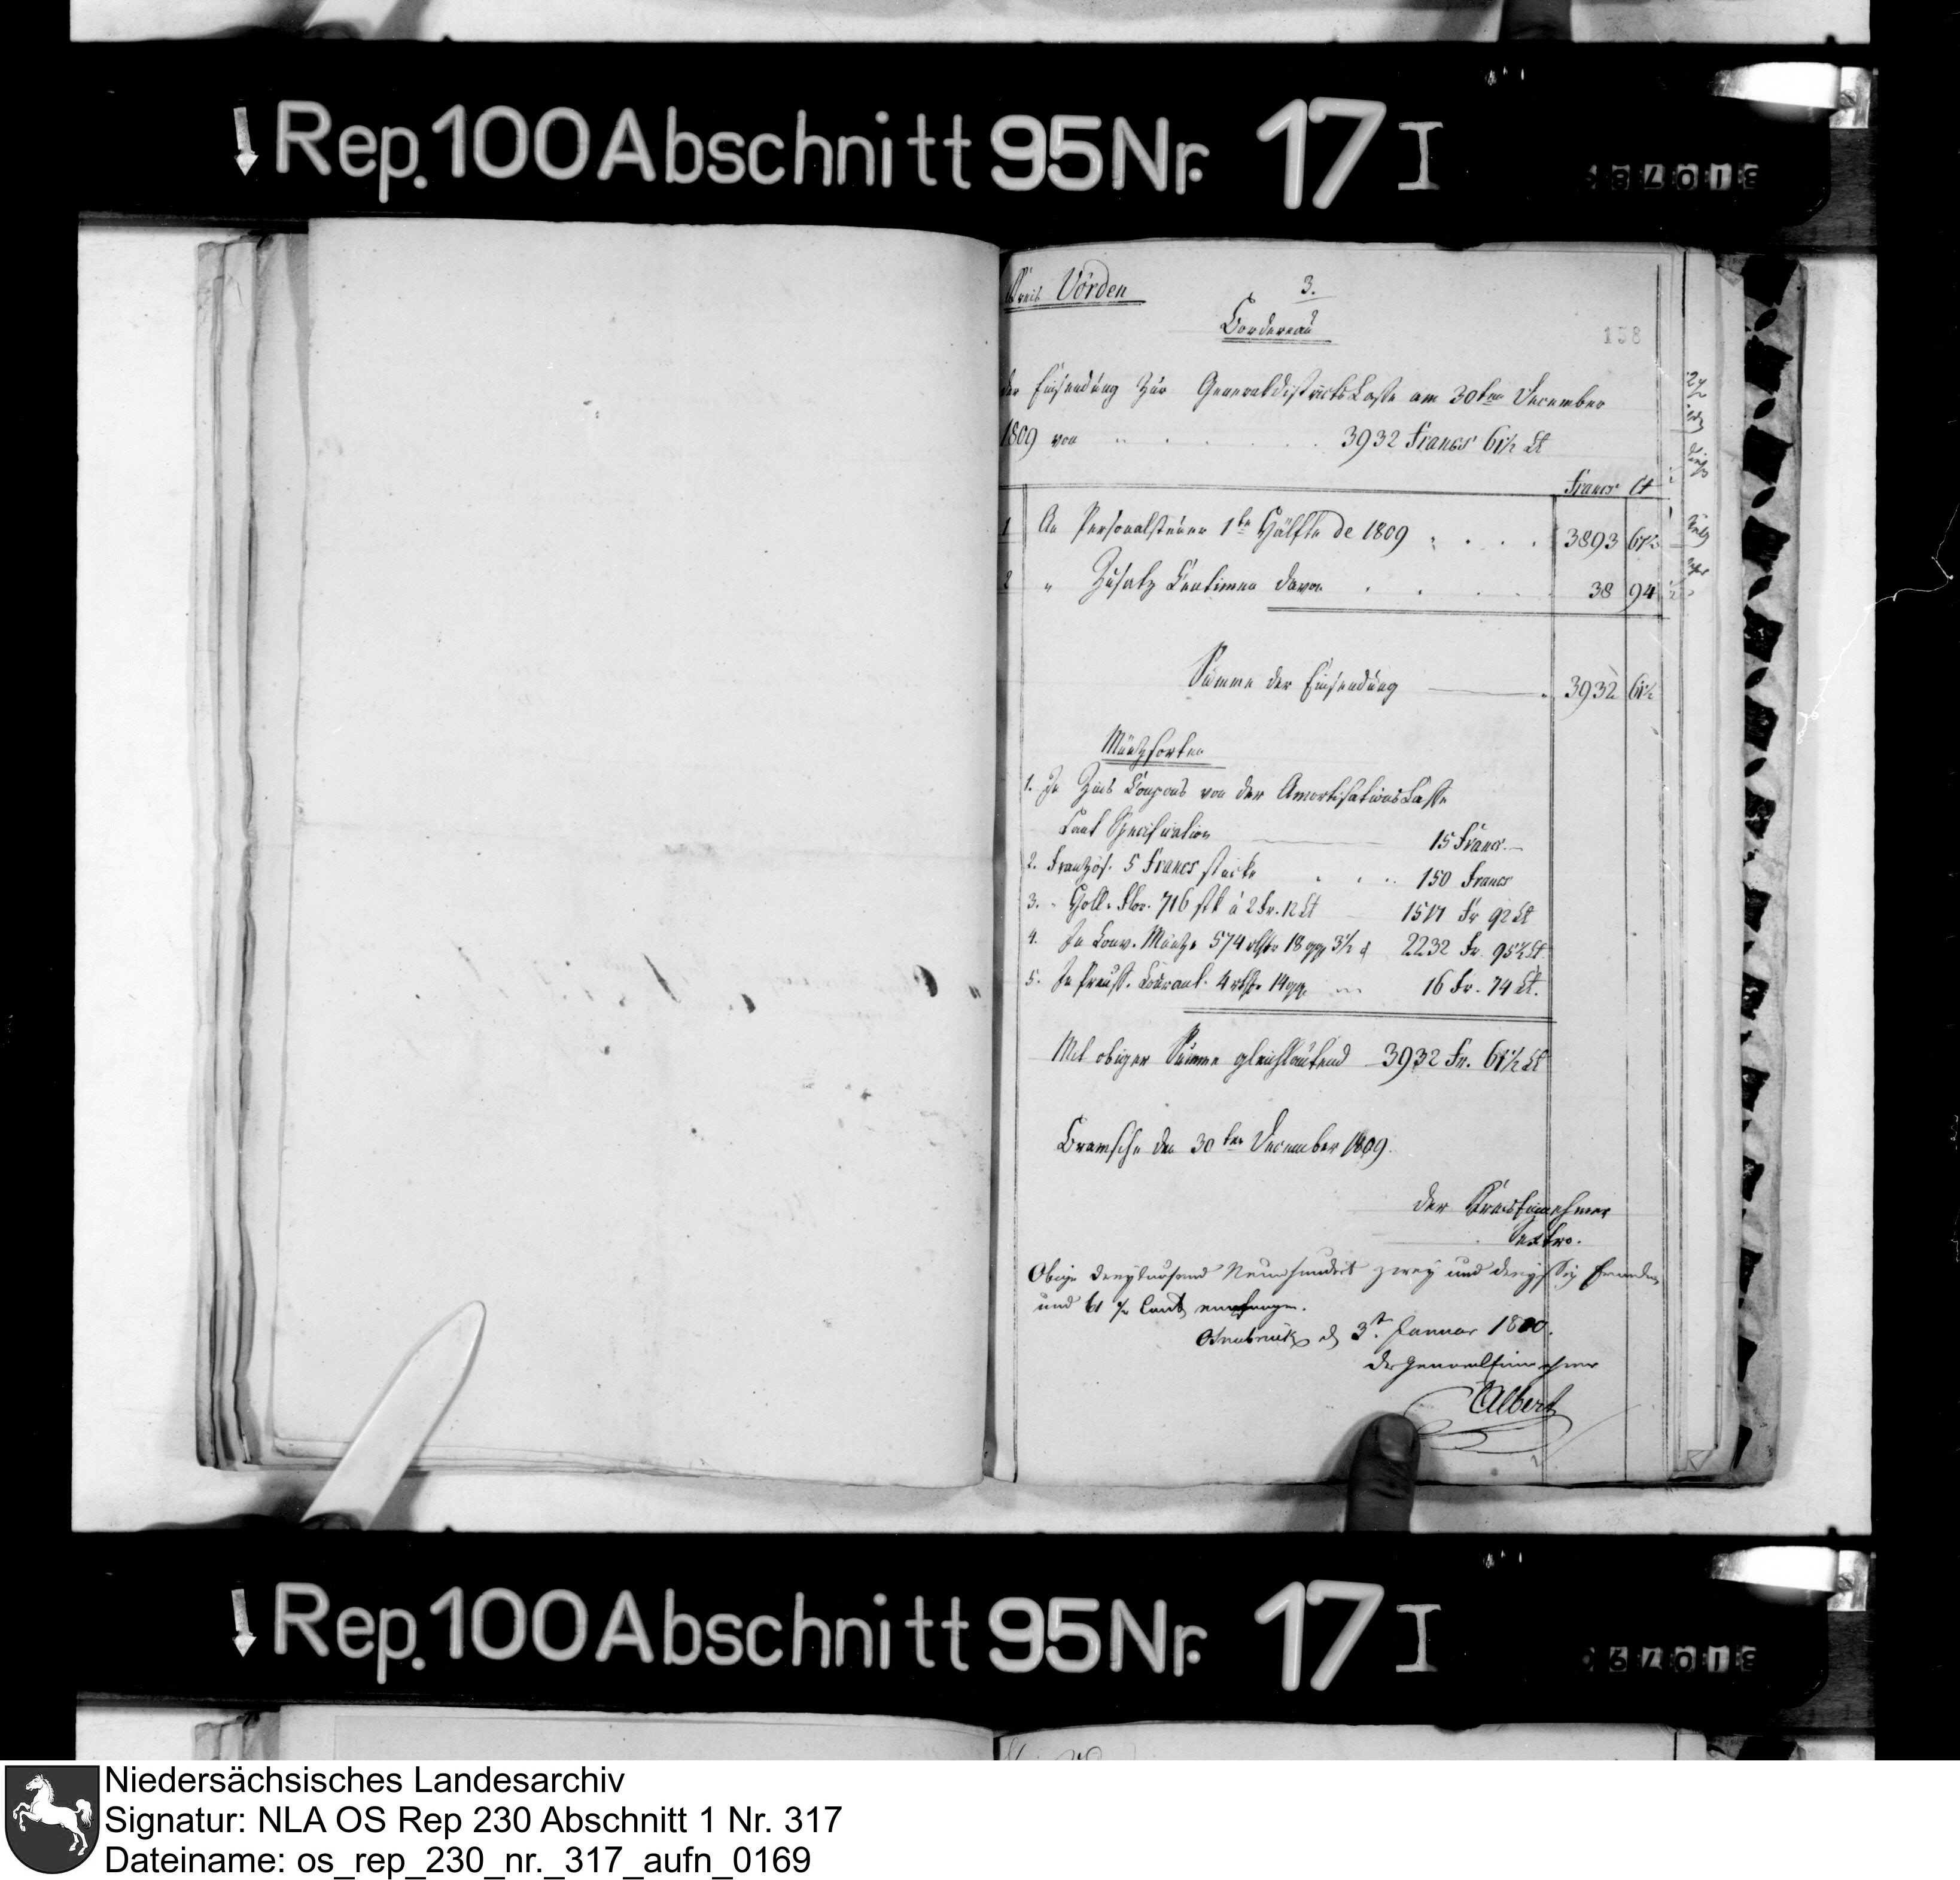 ↓ Rep. 100 Abschnitt 95 Nr. 17 I
Kreis Vörden
3.
Bordereau
158
der Einsendung zur GeneraldistrictsCasse am 30ten December
1809 von 3932 Francs 61½ Ct
Francs Ct
1 An Personalsteuer 1te Hälfte de 1809 . . . . 3893 67½
2 " Zusatz Centimen davon . . . . 38 94
Summe der Einsendung 3932 61½
Müntzsorten
1. In Zins Coupons von der AmortisationsCasse
Laut Specification 15 Francs.
2. Französ. 5 Francs stücke . . . 150 Francs
3. Holl. Flor. 716 stk à 2 Fr. 12 Ct 1517 Fr 92 Ct
4. In Conv. Müntze 574 rthlr 18 ggr 3½ d 2232 Fr 95½ Ct.
5. In Preuss. Courant. 4 rthlr 14 ggr 16 Fr. 74 Ct.
Mit obiger Summe gleichlautend 3932 Fr. 61½ Ct
Bramsche den 30ten December 1809.
der Kreiseinnehmer
Sextro.
Obige dreytausend Neunhundert zwey und dreyssig Franken
und 61 ½ Cent empfangen.
Osnabrück d 3t. Januar 1810.
Der Generaleinnehmer
Albert
↓ Rep. 100 Abschnitt 95 Nr. 17 I
Niedersächsisches Landesarchiv
Signatur: NLA OS Rep 230 Abschnitt 1 Nr. 317
Dateiname: os_rep_230_nr._317_aufn_0169